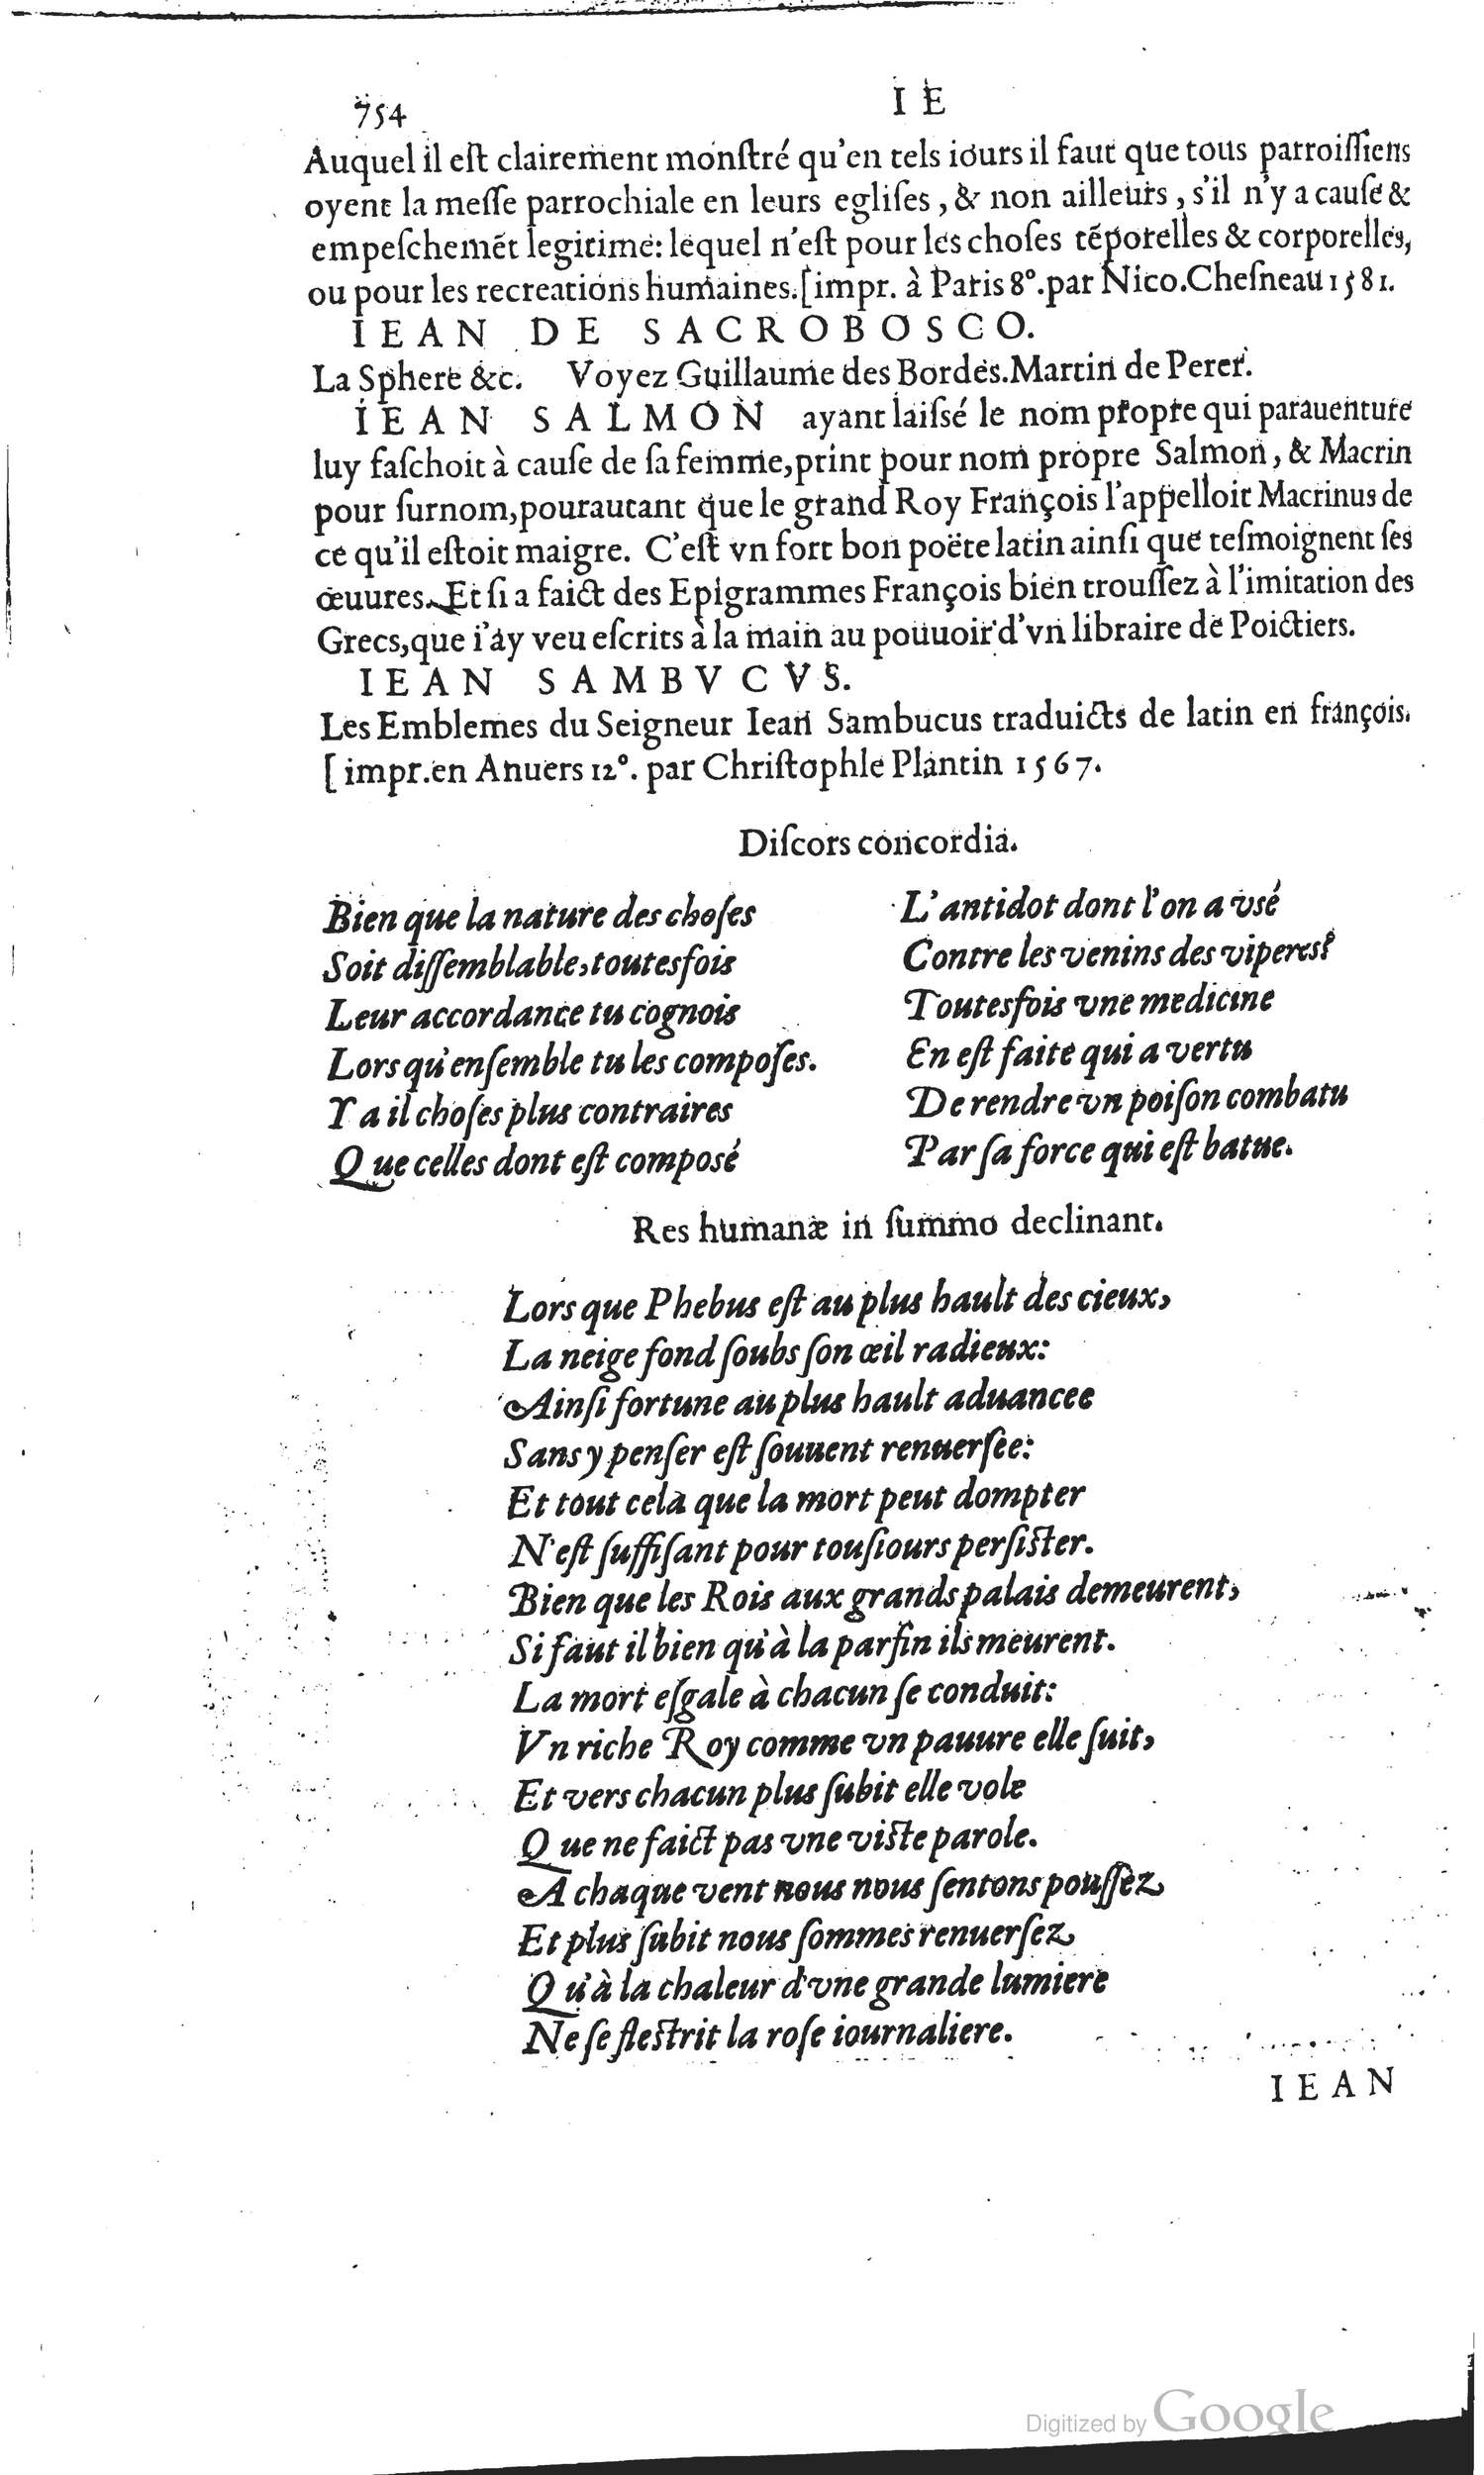 754
I E
Auquel il eſt clairement monſtré qu'en tels iours il faut que tous parroiſſiens
oyent la meſſe parrochiale en leurs egliſes, & non ailleurs, s'il n'y a cauſe &
empeſchemēt legitime: lequel n'eſt pour les choſes tēporelles & corporelles,
ou pour les recreations humaines. [impr. à Paris 8°. par Nico. Cheſneau 1581.
IEAN DE SACROBOSCO.
La Sphere &c. Voyez Guillaume des Bordes. Martin de Perer.
IEAN SALMON ayant laiſsé le nom propre qui parauenture
luy faſchoit à cauſe de ſa femme, print pour nom propre Salmon, & Macrin
pour ſurnom, pourautant que le grand Roy François l'appelloit Macrinus de
ce qu'il eſtoit maigre. C'eſt vn fort bon poëte latin ainſi que teſmoignent ſes
œuures. Et ſi a faict des Epigrammes François bien trouſſez à l'imitation des
Grecs, que i'ay veu eſcrits à la main au pouuoir d'vn libraire de Poictiers.
IEAN SAMBVCVS.
Les Emblemes du Seigneur Iean Sambucus traduicts de latin en françois.
[impr. en Anuers 12°. par Chriſtophle Plantin 1567.
Diſcors concordia.
Bien que la nature des choſes
Soit diſſemblable, toutesfois
Leur accordance tu cognois
Lors qu'enſemble tu les compoſes.
Y a il choſes plus contraires
Que celles dont eſt composé
L'antidot dont l'on a vsé
Contre les venins des viperes?
Toutesfois vne medicine
En eſt faite qui a vertu
De rendre vn poiſon combatu
Par ſa force qui eſt batue.
Res humanæ in ſummo declinant.
Lors que Phebus eſt au plus hault des cieux,
La neige fond ſoubs ſon œil radieux:
Ainſi fortune au plus hault aduancee
Sans y penſer eſt ſouuent renuerſee:
Et tout cela que la mort peut dompter
N'eſt ſuffiſant pour touſiours perſiſter.
Bien que les Rois aux grands palais demeurent,
Si faut il bien qu'à la parfin ils meurent.
La mort eſgale à chacun ſe conduit:
Vn riche Roy comme vn pauure elle ſuit,
Et vers chacun plus ſubit elle vole
Que ne faict pas vne viſte parole.
A chaque vent nous nous ſentons pouſſez
Et plus ſubit nous ſommes renuerſez
Qu'à la chaleur d'vne grande lumiere
Ne ſe fleſtrit la roſe iournaliere.
IEAN
Digitized by Google